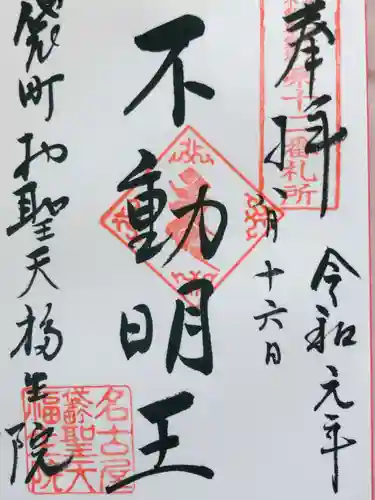 奉拝
令和元年
八月十六日
不動明王
袋町お聖天福生院
第十二番札所
名古屋
袋町聖天
福生院